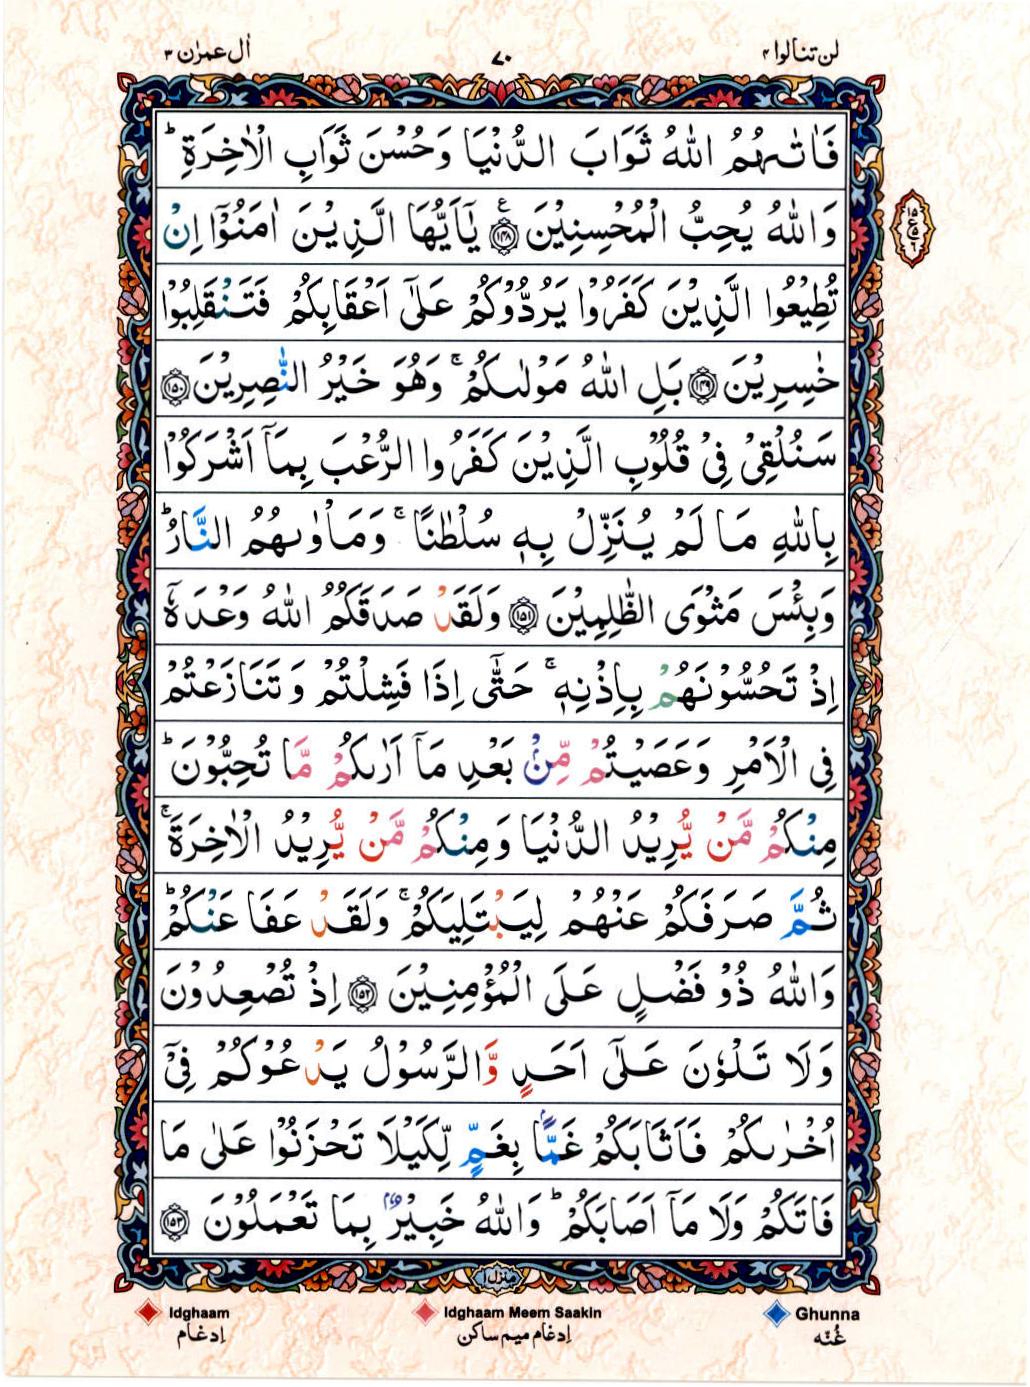 لن تنالوا ۴
۷۰
اٰل عمرٰن ۳
فَاٰتٰىهُمُ اللّٰهُ ثَوَابَ الدُّنْيَا وَحُسْنَ ثَوَابِ الْاٰخِرَةِ ؕ
وَاللّٰهُ يُحِبُّ الْمُحْسِنِيْنَ ﴿۱۴۸﴾ ع يٰۤاَيُّهَا الَّذِيْنَ اٰمَنُوْۤا اِنْ
تُطِيْعُوا الَّذِيْنَ كَفَرُوْا يَرُدُّوْكُمْ عَلٰۤى اَعْقَابِكُمْ فَتَنْقَلِبُوْا
خٰسِرِيْنَ ﴿۱۴۹﴾ بَلِ اللّٰهُ مَوْلٰىكُمْ ۚ وَهُوَ خَيْرُ النّٰصِرِيْنَ ﴿۱۵۰﴾
سَنُلْقِىْ فِىْ قُلُوْبِ الَّذِيْنَ كَفَرُوا الرُّعْبَ بِمَاۤ اَشْرَكُوْا
بِاللّٰهِ مَا لَمْ يُنَزِّلْ بِهٖ سُلْطٰنًا ۚ وَمَاْوٰىهُمُ النَّارُ ؕ
وَبِئْسَ مَثْوَى الظّٰلِمِيْنَ ﴿۱۵۱﴾ وَلَقَدْ صَدَقَكُمُ اللّٰهُ وَعْدَهٗۤ
اِذْ تَحُسُّوْنَهُمْ بِاِذْنِهٖ ۚ حَتّٰۤى اِذَا فَشِلْتُمْ وَ تَنَازَعْتُمْ
فِى الْاَمْرِ وَعَصَيْتُمْ مِّنْۢ بَعْدِ مَاۤ اَرٰىكُمْ مَّا تُحِبُّوْنَ ؕ
مِنْكُمْ مَّنْ يُّرِيْدُ الدُّنْيَا وَمِنْكُمْ مَّنْ يُّرِيْدُ الْاٰخِرَةَ ۚ
ثُمَّ صَرَفَكُمْ عَنْهُمْ لِيَبْتَلِيَكُمْ ۚ وَلَقَدْ عَفَا عَنْكُمْ ؕ
وَاللّٰهُ ذُوْ فَضْلٍ عَلَى الْمُؤْمِنِيْنَ ﴿۱۵۲﴾ اِذْ تُصْعِدُوْنَ
وَلَا تَلْوٗنَ عَلٰۤى اَحَدٍ وَّالرَّسُوْلُ يَدْعُوْكُمْ فِىْۤ
اُخْرٰىكُمْ فَاَثَابَكُمْ غَمًّۢا بِغَمٍّ لِّكَيْلَا تَحْزَنُوْا عَلٰى مَا
فَاتَكُمْ وَلَا مَاۤ اَصَابَكُمْ ؕ وَاللّٰهُ خَبِيْرٌۢ بِمَا تَعْمَلُوْنَ ﴿۱۵۳﴾
منزل ۱
Idghaam
ادغام
Idghaam Meem Saakin
ادغام میم ساکن
Ghunna
غُنّه